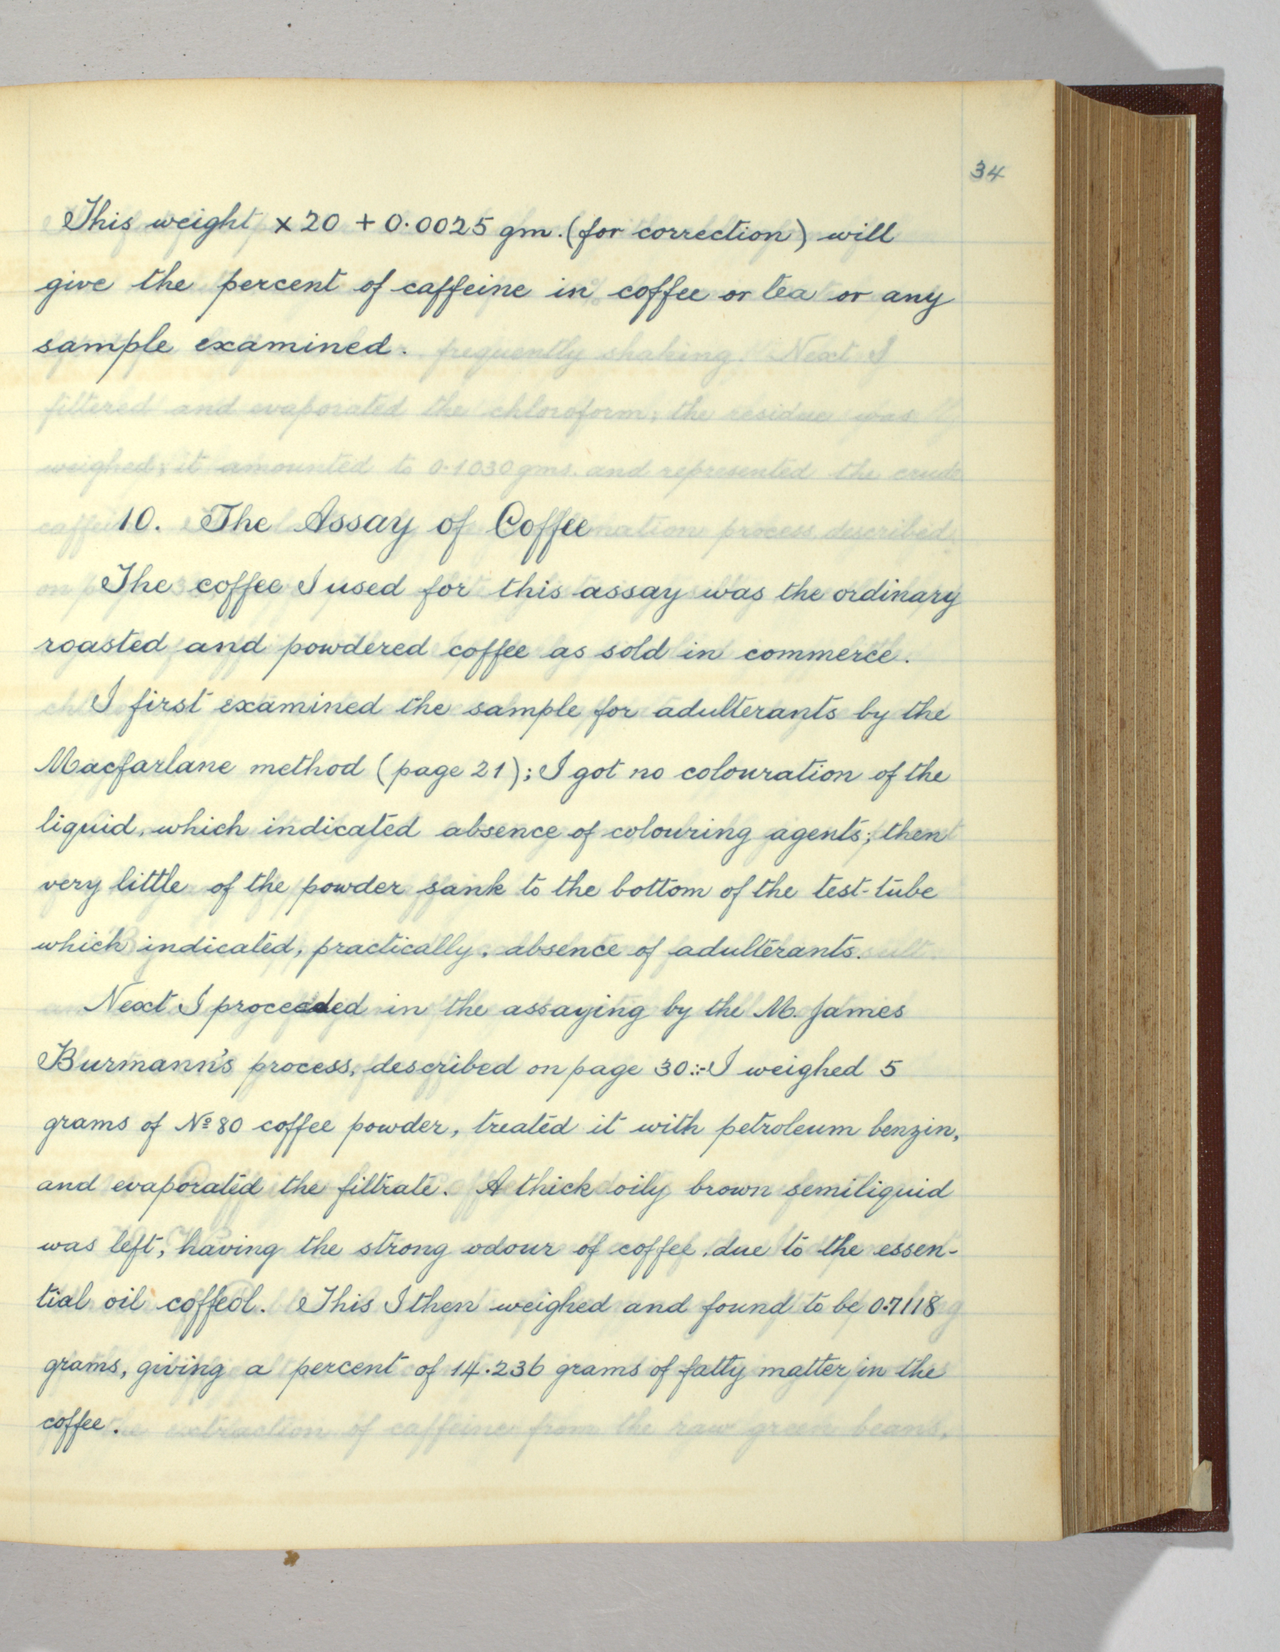 34
This weight x 20 + 0.0025 gm. (for correction) will
give the percent of caffeine in coffee or tea or any
sample examined.
frequently shaking. Next I
filtered and evaporated the chloroform; the residue was
weighed; it amounted to 0.1030 gms. and represented the crude
10. The Assay of Coffee
process described
The coffee I used for this assay was the ordinary
roasted and powdered coffee as sold in commerce.
I first examined the sample for adulterants by the
Macfarlane method (page 21); I got no colouration of the
liquid, which indicated absence of colouring agents; then
very little of the powder sank to the bottom of the test-tube
which indicated, practically, absence of adulterants.
Next I proceeded in the assaying by the M. James
Burmann's process, described on page 30:- I weighed 5
grams of No 80 coffee powder, treated it with petroleum benzin,
and evaporated the filtrate. A thick oily brown semiliquid
was left, having the strong odour of coffee, due to the essen-
tial oil coffeol. This I then weighed and found to be 0.7118
grams, giving a percent of 14.236 grams of fatty matter in the
coffee.
extraction of caffeine from the raw green beans,